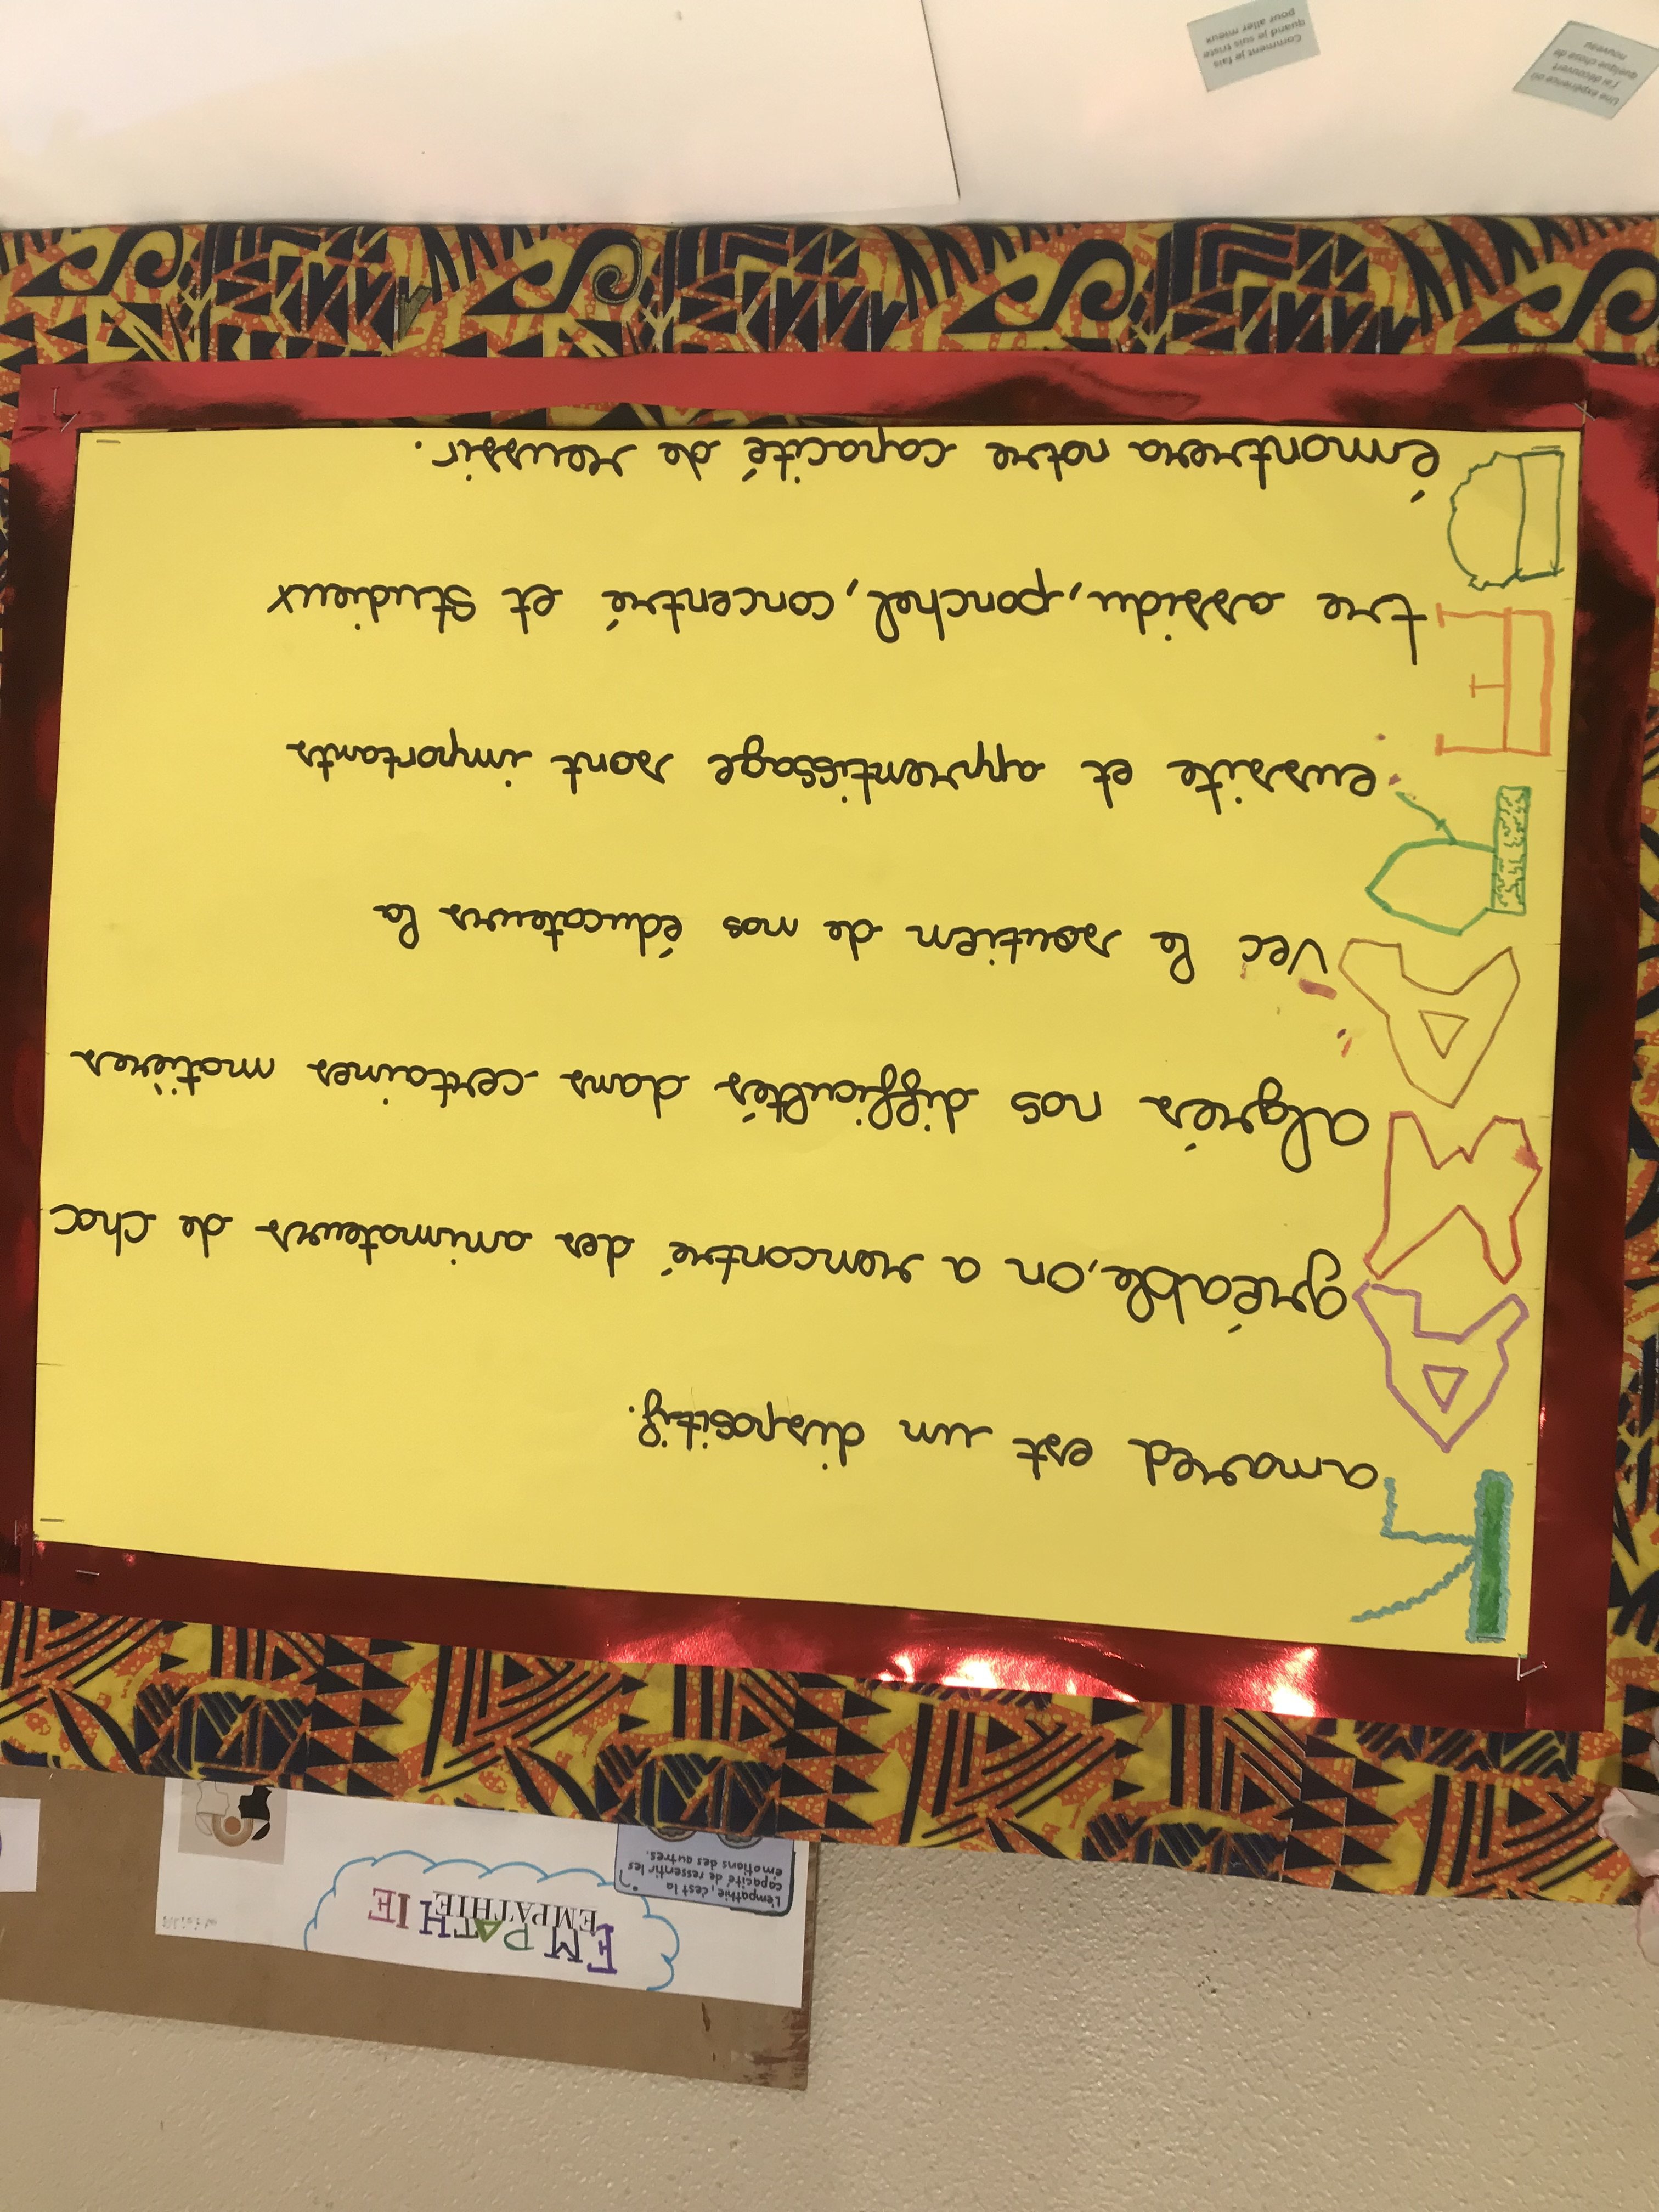 EMPATHIE
EMPATHIE
L'empathie, c'est la
capacité de ressentir les
émotions des autres.
Kamared est un dispositif.
Agréable, on a rencontré des animateurs de choc
Malgrés nos difficultés dans certaines matières
Avec le soutien de nos éducateurs la
Reussite et apprentissage sont importants
Etre assidu, ponctuel, concentré et studieux
Démontrera notre capacité de reussir.
Une expérience où
j'ai découvert
quelque chose de
nouveau
Comment je fais
quand je suis triste
pour aller mieux